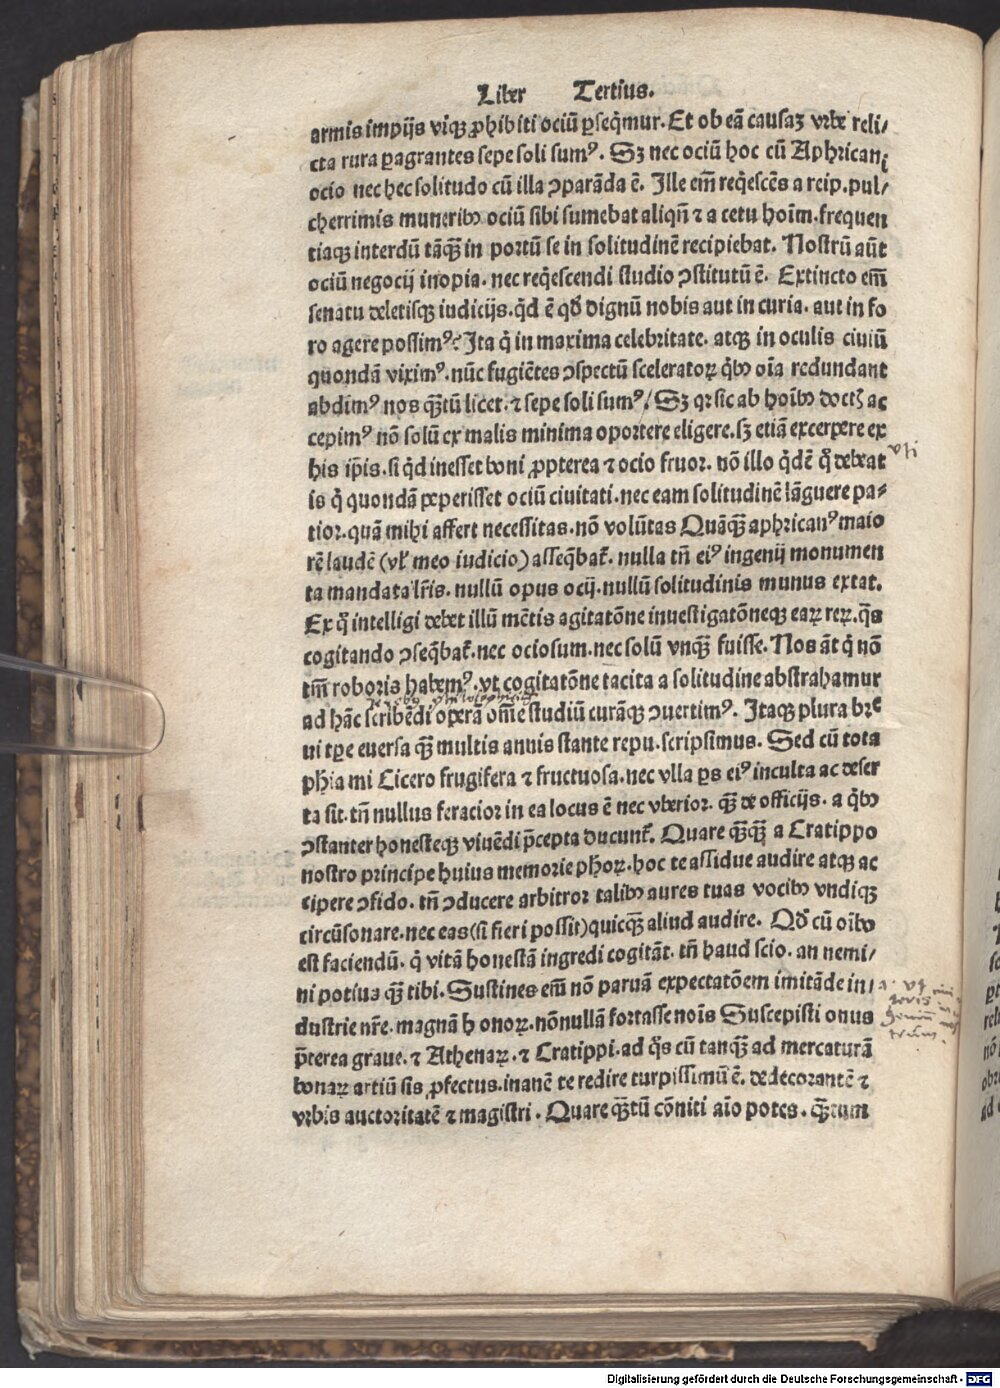 Liber Tertius.
armis impijs viqꝫ ꝓhibiti ociū ꝑseq̄mur. Et ob eā causaꝫ vrbē reli/
cta rura ꝑagrantes sepe soli sumꝰ. Sꝫ nec ociū hoc cū Aphricani
ocio nec hec solitudo cū illa ꝯparāda ē. Ille em̄ reqͥescēs a reip. pul/
cherrimis muneribꝰ ociū sibi sumebat aliqn̄ ⁊ a cetu hoīm. frequen
tiaqꝫ interdū tāqꝫ̄ in portū se in solitudinē recipiebat. Nostrū aūt
ociū negocij inopia. nec reqͥescendi studio ꝯstitutū ē. Extincto em̄
senatu deletisqꝫ iudicijs. qͥd ē qd̄ dignū nobis aut in curia. aut in fo
ro agere possimꝰ? Ita qͥ in maxima celebritate. atqꝫ in oculis ciuiū
quondā viximꝰ. nūc fugiētes ꝯspectū sceleratoꝝ qͥbꝰ oīa redundant
abdimꝰ nos qꝫ̄tū licet. ⁊ sepe soli sumꝰ/ Sꝫ qꝛ sic ab hoībꝰ doctꝭ ac
cepimꝰ nō solū ex malis minima oportere eligere. sꝫ etiā excerpere ex
his ip̄is. si qͥd inesset boni ꝓpterea ⁊ ocio fruor. nō illo qͥdē qͦ debeat
vti
is qͥ quondā peperisset ociū ciuitati. nec eam solitudinē lāguere pa/
tior. quā mihi affert necessitas. nō volūtas Quāqꝫ̄ aphricanꝰ maio
rē laudē (vl̓ meo iudicio) asseq̄bat᷑. nulla tn̄ eiꝰ ingenij monumen
ta mandata lr̄is. nullū opus ocij. nullū solitudinis munus extat.
Ex qͦ intelligi debet illū mētis agitatōne inuestigatōneqꝫ eaꝝ reꝝ. qͣs
cogitando ꝯseq̄bat᷑. nec ociosum. nec solū vnqꝫ̄ fuisse. Nos āt qͥ nō
tm̄ roboris habemꝰ. vt cogitatōne tacita a solitudine abstrahamur
ad hāc scribēdi operā om̄e studiū curāqꝫ ꝯuertimꝰ. Itaqꝫ plura bre
ui tꝑe euersa qꝫ̄ multis annis stante repu. scripsimus. Sed cū tota
phīa mi Cicero frugifera ⁊ fructuosa. nec vlla ꝑs eiꝰ inculta ac deser
ta sit. tn̄ nullus feracior in ea locus ē nec vberior. qꝫ̄ de officijs. a qͥbꝰ
ꝯstanter honesteqꝫ viuēdi p̄cepta ducunt᷑. Quare qꝫ̄qꝫ̄ a Cratippo
nostro principe huius memorie phoꝝ. hoc te assidue audire atqꝫ ac
cipere ꝯfido. tn̄ ꝯducere arbitror talibꝰ aures tuas vocibꝰ vndiqꝫ
circūsonare. nec eas (si fieri possit) quicqꝫ̄ aliud audire. Qd̄ cū oībꝰ
est faciendū. qͥ vitā honestā ingredi cogitāt. tn̄ haud scio. an nemi/
ni potius qꝫ̄ tibi. Sustines em̄ nō paruā expectatōem imitāde in/
dustrie nr̄e. magnā honoꝝ. nōnullā fortasse noīs Suscepisti onus
p̄terea graue. ⁊ Athenaꝝ. ⁊ Cratippi. ad qͦs cū tanqꝫ̄ ad mercaturā
bonaꝝ artiū sis ꝓfectus. inanē te redire turpissimū ē. dedecorantē ⁊
vrbis auctoritatē ⁊ magistri. Quare qꝫ̄tū cōniti aīo potes. qꝫ̄tum
Digitalisierung gefördert durch die Deutsche Forschungsgemeinschaft - DFG